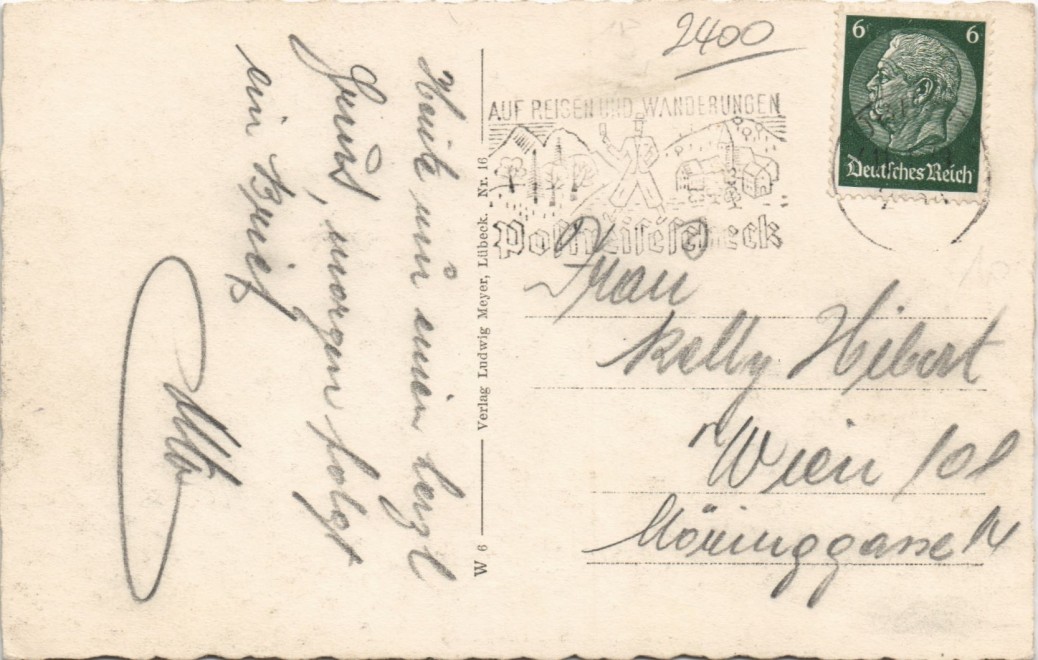 2400
6 6
Deutsches Reich
AUF REISEN UND WANDERUNGEN
Postreisescheck
Frau
Kelly Hibert
Wien 101
Möringgasse
Verlag Ludwig Meyer, Lübeck. Nr. 16
W 6
Heute nur einen herzl
Gruß, morgen folgt
ein Brief
Otto